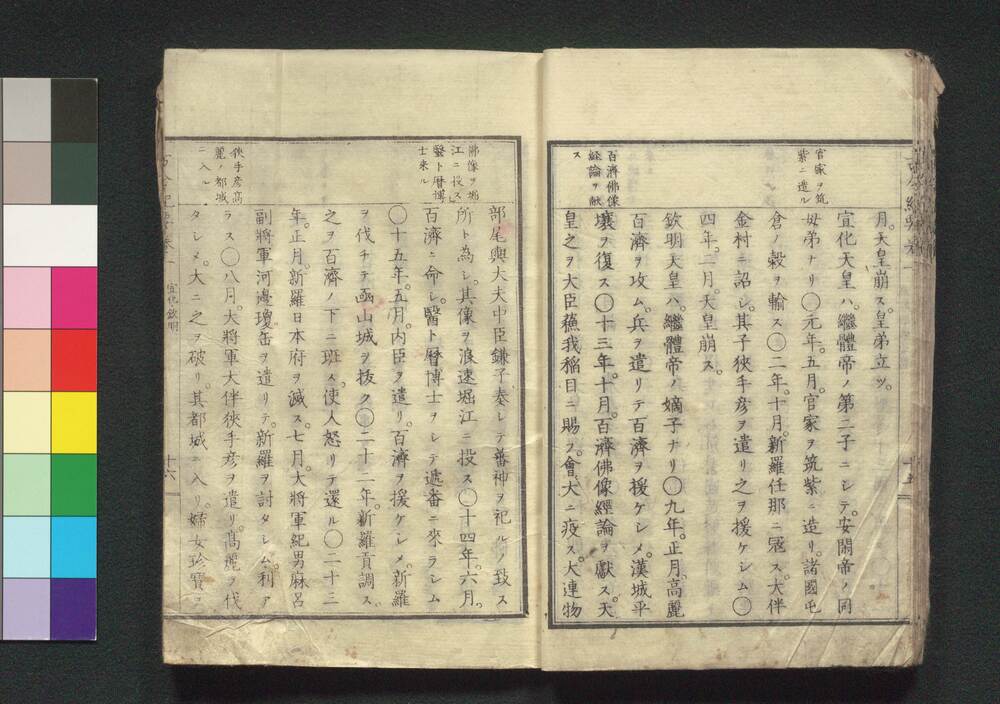 官家ヲ筑
紫ニ造ル
百濟佛像
經論ヲ獻
ス
月。天皇崩ス。皇弟立ツ。
宣化天皇ハ。繼體帝ノ第二子ニシテ。安閑帝ノ同
母弟ナリ〇元年。五月。官家ヲ筑紫ニ造リ。諸國屯
倉ノ穀ヲ輸ス〇二年。十月。新羅任那ニ寇ス。大伴
金村ニ詔シ。其子狹手彦ヲ遣リ之ヲ援ケシム〇
四年。二月。天皇崩ス。
欽明天皇ハ。繼體帝ノ嫡子ナリ〇九年。正月。高麗
百濟ヲ攻ム。兵ヲ遣リテ百濟ヲ援ケシメ。漢城平
壤ヲ復ス〇十三年。十月。百濟佛像經論ヲ獻ス。天
皇之ヲ大臣蘓我稲目ニ賜フ。會大ニ疫ス。大連物
佛像ヲ堀
江ニ投ス
醫卜暦博
士来ル
狹手彦高
麗ノ都城
ニ入ル
部尾輿大夫中臣鎌子奏シテ蕃神ヲ祀ルノ致ス
所ト為シ。其像ヲ浪速堀江ニ投ス〇十四年。六月。
百濟ニ命シ。醫卜暦博士ヲシテ遞番ニ來ラシム
〇十五年。五月。内臣ヲ遣リ。百濟ヲ援ケシメ。新羅
ヲ伐チテ凾山城ヲ抜ク〇二十二年。新羅貢調ス。
之ヲ百濟ノ下ニ班ス。使人怒リテ還ル〇二十三
年。正月。新羅日本府ヲ滅ス。七月。大將軍紀男麻呂
副將軍河邊瓊缶ヲ遣リテ。新羅ヲ討タシム。利ア
ラス〇八月。大將軍大伴狹手彦ヲ遣リ。高麗ヲ伐
タシメ。大ニ之ヲ破リ。其都城ニ入リ。婦女珍寶ヲ
宣化欽明
十六